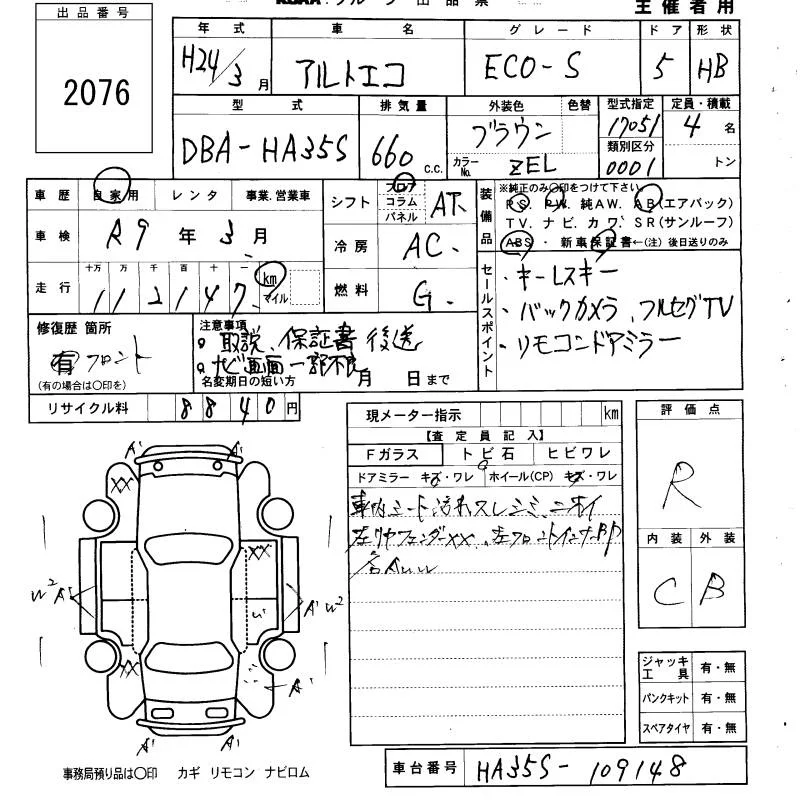 グループ 出品票
主催者用
出品番号
2076
年式 車名 グレード ドア 形状
H24/3月 アルトエコ ECO-S 5 HB
型式 排気量 外装色 色替 型式指定 定員・積載
DBA-HA35S 660 c.c. ブラウン 17051 4名
カラーNo. ZEL 類別区分 0001 トン
車歴 自家用 レンタ 事業.営業車
シフト フロア コラム パネル AT
車検 R9年3月
冷房 AC
走行 十万 万 千 百 十 一
112147 km マイル
燃料 G
装備品 ※純正のみ○印をつけて下さい
PS. PW. 純AW. AB(エアバック)
TV. ナビ. カワ. SR(サンルーフ)
ABS ・ 新車保証書←(注)後日送りのみ
セールスポイント
・キーレスキー
・バックカメラ、フルセグTV
・リモコンドアミラー
修復歴 箇所
有 フロント
(有の場合は○印を)
注意事項
取説、保証書後送
ナビ画面一部不良
名変期日の短い方 月 日まで
リサイクル料 8840円
現メーター指示 km
【査定員記入】
Fガラス トビ石 ヒビワレ
ドアミラー キズ・ワレ ホイール(CP) キズ・ワレ
車内シート汚れスレシミ、ニオイ
評価点
R
内装 外装
C B
A' A'
XX
XX
W² A' A' W²
U'
XX
A'
A' A'
ジャッキ工具 有・無
パンクキット 有・無
スペアタイヤ 有・無
事務局預り品は○印 カギ リモコン ナビロム
車台番号 HA35S-109148